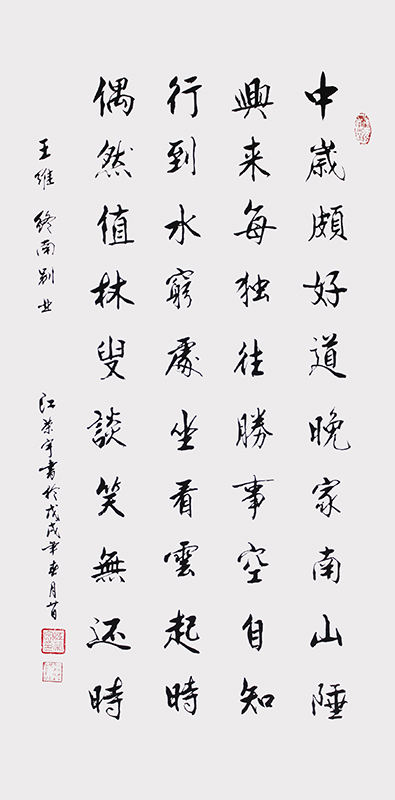 中歲頗好道晚家南山陲
興来每独往勝事空自知
行到水窮處坐看雲起時
偶然值林叟談笑無还時
王維 終南别业
江荣宇書於戊戌年